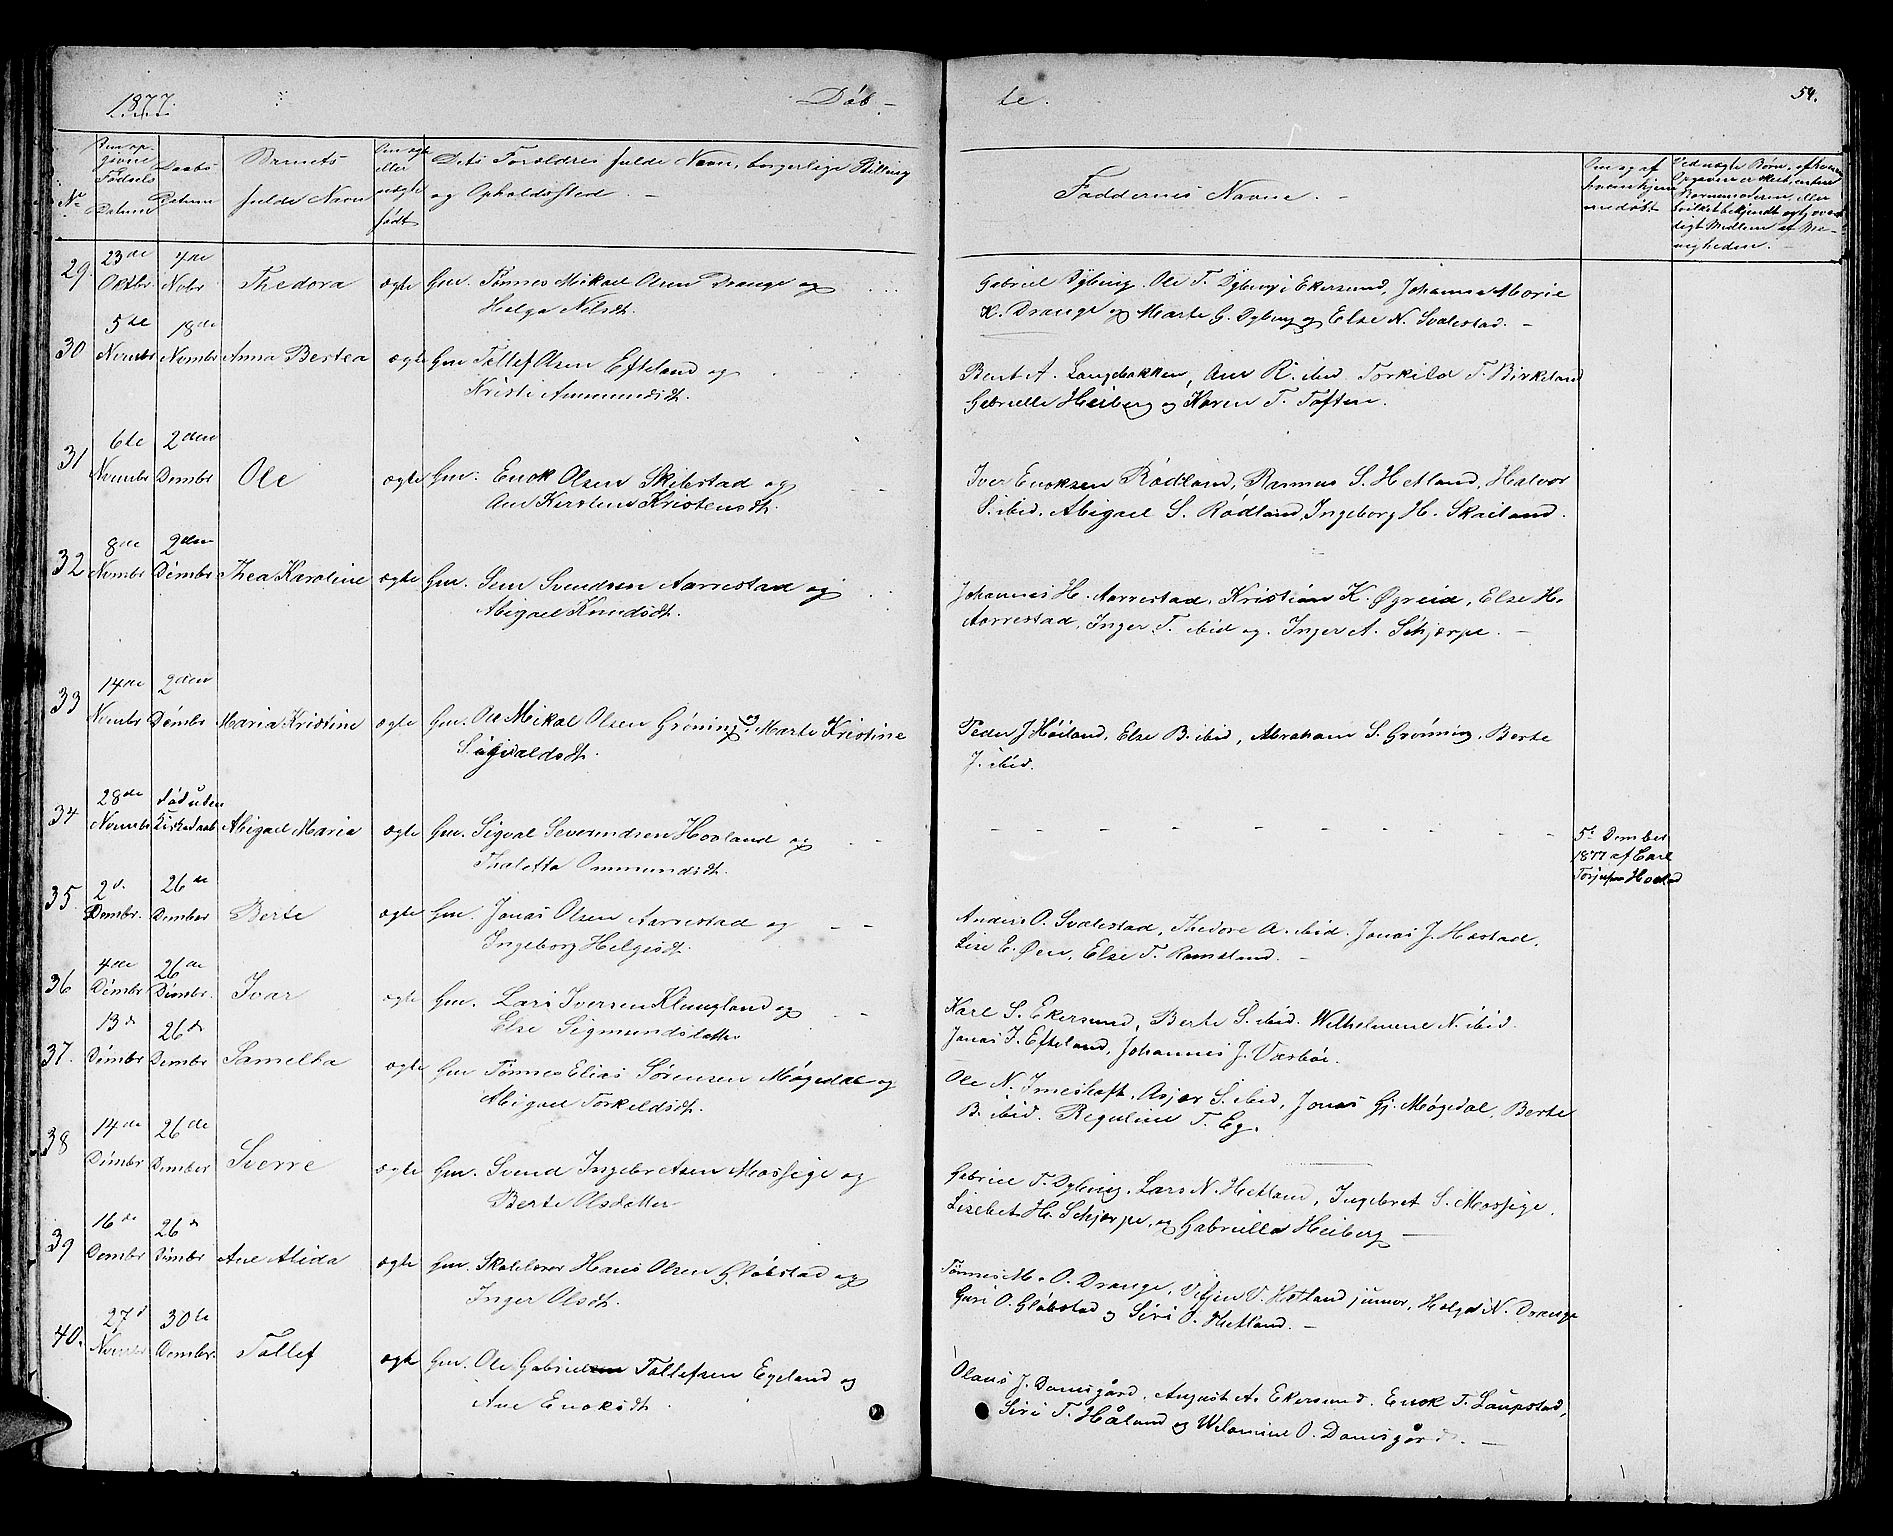 1877.
Døb-
te.
54.
No
Den op-
givne
Fødsels
Datum
Daabs
Datum
Barnets
fulde Navn
Om ægte
eller
uægte
født
Dets Foreldres fulde Navn, borgerlige Stilling
og Opholdssted. —
Faddernes Navne. —
Om og af
hvem hjem-
medøbt
29. 23de Oktbr. 4de Nobr. Thedora ægte Gm. Tønnes Mikael Olsen Drange og
Helga Nilsdt.
Gabriel Dybing. Ole T. Dybing i Ekersund, Johanna Marie
K. Drange og Marte G. Dybing og Else N. Svalestad. —
30 5te Novmbr 18de Novmbr Anna Bertea ægte Gm Tollef Olsen Efteland og
Kristi Ammundsdt.
Bent A. Langbakken, Ane R. ibid. Torkild T. Birkeland
Gabrielle Heiberg og Karen T. Toften.
31 6te Novmbr 2den Dembr Ole ægte Gm. Enok Olsen Skibstad og
Ane Kirstine Kristensdt.
Iver Enoksen Rødland, Rasmus S. Hetland, Halvor
S. ibid. Abigael S. Rødland, Ingeborg H. Skailand.
32 8de Novmbr 2den Dembr Thea Karoline ægte Gm. Sem Svendsen Aarrestad og
Abigael Knudsdt.
Johannes H. Aarrestad, Kristian K. Øgreid, Else H.
Aarrestad, Inger T. ibid og Inger A. Schjerpe. —
33 14de Novmbr 2den Dembr Maria Kristine ægte Gm. Ole Mikal Olsen Grøning og Marte Kristine
Sigvaldsdt.
Peder J Høiland, Else B. ibid, Abraham S. Grønning, Berte
J. ibid.
34 28de Novmbr Død uden Kirkedaab Abigael Maria ægte Gm. Sigval Severindsen Hovland og
Thaletta Ommundsdt.
5te Dember
1877 af Carl
35. 2d. Dembr. 26de Dember Berte ægte Gm. Jonas Olsen Aarrestad og
Ingeborg Helgesdt.
Anders O. Svalestad, Thedore A. ibid. Jonas J. Hæstad.
Lise E. Øen, Else T. Ramsland. —
36 4de Dembr 26de Dembr. Ivar ægte Gm. Lars Iversen Klungland og
Else Sigmundsdatter
Karl S. Ekersund, Berte S. ibid. Wilhelmine N. ibid.
Jonas I. Efteland, Johannes J. Værbøe.
37. 13d Dembr 26d Dembr Samelba ægte Gm Tønnes Elias Sørensen Møgedal og
Abigael Torkeldsdt.
Ole N. Imeshaft, Asjer S. ibid, Jonas Gj. Møgedal, Berte
B. ibid. Reguline T. Eg.
38 14de Dembr 26de Dember Sverre ægte Gm. Svend Ingebretsen Mossige og
Berte Olsdatter
Gabriel T. Dybing, Lars N. Hetland, Ingebret S. Mossige,
Lisebet H. Schjerpe, og Gabriella Heiberg —
39 16de Dembr 26d Dembr Ane Alida ægte Gm. Skolelærer Hans Olsen Gløbstad og
Inger Olsdt.
Tønnes M. O. Drange, Vetjen V. Hetland junior, Helga N. Drange
Guri O. Gløbstad og Siri O. Hetland. —
40. 27d Novmbr 30te Dembr. Tollef ægte Gm. Ole Gabrielsen Tollefsen Egeland og
Ane Enoksdt.
Olaus J. Damsgård, August A. Ekersund. Enok T. Laupstad,
Siri T. Håland og Wilamine O. Damsgård. —